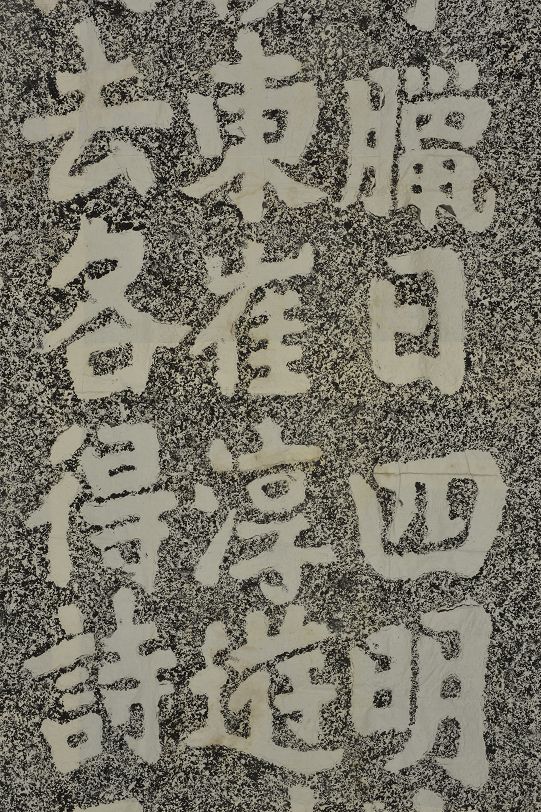 臘日四明
東崔淳遊
去各得詩